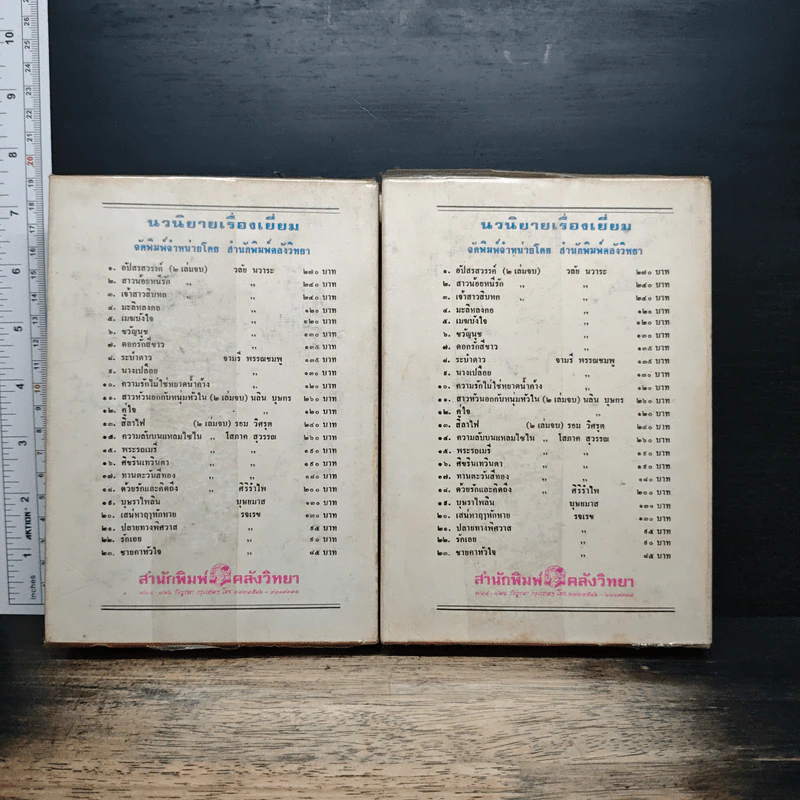 นวนิยายเรื่องเยี่ยม
จัดพิมพ์จำหน่ายโดย สำนักพิมพ์คลังวิทยา
๑. อัปสรสวรรค์ (๒ เล่มจบ) วลัย นวาระ ๒๗๐ บาท
๒. สาวน้อยหนีรัก ,, ,, ๒๔๐ บาท
๓. เจ้าสาวสิบหก ,, ,, ๒๔๐ บาท
๔. มะลิหลงกอ ,, ๑๒๐ บาท
๕. เมฆบังใจ ,, ๑๒๐ บาท
๖. ขวัญนุช ,, ๑๓๐ บาท
๗. ดอกรักสีขาว ,, ๑๓๕ บาท
๘. ระบำดาว จามรี พรรณชมพู ๑๓๕ บาท
๙. นางเปลือย ,, ๑๓๐ บาท
๑๐. ความรักไม่ใช่หยาดน้ำค้าง ,, ๑๒๐ บาท
๑๑. สาวหัวนอกกับหนุ่มหัวใน (๒ เล่มจบ) นลิน บุษกร ๒๖๐ บาท
๑๒. คู่ใจ ,, ๑๒๐ บาท
๑๓. สิ้ลาไฟ (๒ เล่มจบ) รอม วิศรุต ๒๔๐ บาท
๑๔. ความลับบนแหลมไซไน ,, โสภาค สุวรรณ ๒๖๐ บาท
๑๕. พระรถเมรี ,, ,, ๑๕๐ บาท
๑๖. ศิขรินเทวินตา ,, ,, ๑๕๐ บาท
๑๗. ทานตะวันสีทอง ,, ,, ๑๘๐ บาท
๑๘. ด้วยรักและคิดถึง ,, ศิริรำไพ ๒๐๐ บาท
๑๙. บุษราไพลิน บุษยมาส ๑๓๐ บาท
๒๐. เสน่หาฤๅหักหาย รจเรข ๑๓๐ บาท
๒๑. ปลายทางพิศวาส ,, ๙๕ บาท
๒๒. รักเอย ,, ๙๐ บาท
๒๓. ชายคาหัวใจ ,, ๘๕ บาท
สำนักพิมพ์ คลังวิทยา
นวนิยายเรื่องเยี่ยม
จัดพิมพ์จำหน่ายโดย สำนักพิมพ์คลังวิทยา
๑. อัปสรสวรรค์ (๒ เล่มจบ) วลัย นวาระ ๒๗๐ บาท
๒. สาวน้อยหนีรัก ,, ,, ๒๔๐ บาท
๓. เจ้าสาวสิบหก ,, ,, ๒๔๐ บาท
๔. มะลิหลงกอ ,, ๑๒๐ บาท
๕. เมฆบังใจ ,, ๑๒๐ บาท
๖. ขวัญนุช ,, ๑๓๐ บาท
๗. ดอกรักสีขาว ,, ๑๓๕ บาท
๘. ระบำดาว จามรี พรรณชมพู ๑๓๕ บาท
๙. นางเปลือย ,, ๑๓๐ บาท
๑๐. ความรักไม่ใช่หยาดน้ำค้าง ,, ๑๒๐ บาท
๑๑. สาวหัวนอกกับหนุ่มหัวใน (๒ เล่มจบ) นลิน บุษกร ๒๖๐ บาท
๑๒. คู่ใจ ,, ๑๒๐ บาท
๑๓. สิ้ลาไฟ (๒ เล่มจบ) รอม วิศรุต ๒๔๐ บาท
๑๔. ความลับบนแหลมไซไน ,, โสภาค สุวรรณ ๒๖๐ บาท
๑๕. พระรถเมรี ,, ,, ๑๕๐ บาท
๑๖. ศิขรินเทวินตา ,, ,, ๑๕๐ บาท
๑๗. ทานตะวันสีทอง ,, ,, ๑๘๐ บาท
๑๘. ด้วยรักและคิดถึง ,, ศิริรำไพ ๒๐๐ บาท
๑๙. บุษราไพลิน บุษยมาส ๑๓๐ บาท
๒๐. เสน่หาฤๅหักหาย รจเรข ๑๓๐ บาท
๒๑. ปลายทางพิศวาส ,, ๙๕ บาท
๒๒. รักเอย ,, ๙๐ บาท
๒๓. ชายคาหัวใจ ,, ๘๕ บาท
สำนักพิมพ์ คลังวิทยา